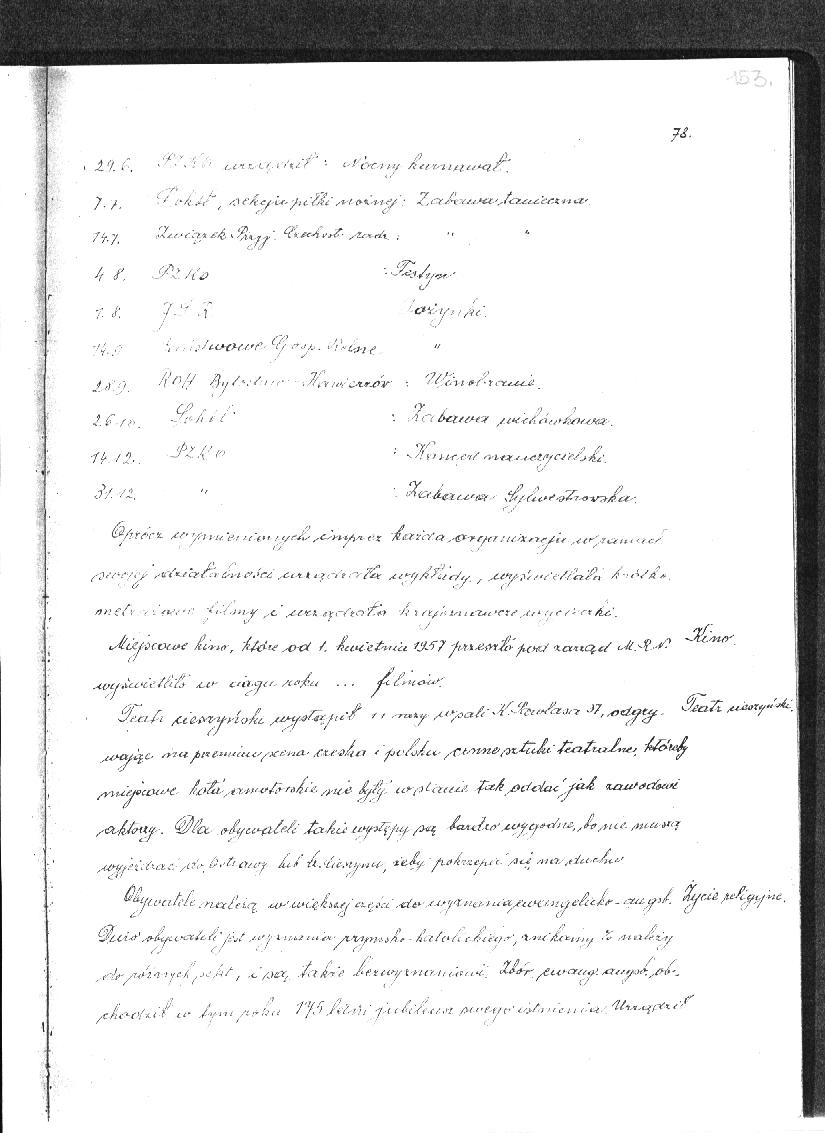 153.
78.
29.6. PZKO urządził: Nocny karnawał.
7.7. Sokół, sekcja piłki nożnej: Zabawa taneczna
14.7. Związek Przyj. Czechosł. radz: " "
4.8. PZKO : Festyn
1.8. Dożynki.
14.9. Państwowe Gosp. Rolne "
28.9. ROH Bytostav Hawierzów : Winobranie.
26.10. Sokół : Zabawa wichówkowa.
14.12. PZKO : Koncert nauczycielski.
31.12. " : Zabawa Sylwestrowska.
Oprócz wymienionych imprez każda organizacja w ramach
swojej działalności urządzała wykłady, wyświetlała krótko
metrażowe filmy i urządzała krajoznawcze wycieczki.
Miejscowe kino, które od 1. kwietnia 1957 przeszło pod zarząd M.R.N. Kino.
wyświetliło w ciągu roku ... filmów.
Teatr cieszyński wystąpił 11 razy w sali K. Pawlasa 37, odgry- Teatr cieszyński.
wając na przemian scena czeska i polska cenne sztuki teatralne, któreby
miejscowe koła amatorskie nie były w stanie tak oddać jak zawodowi
aktorzy. Dla obywateli takie występy są bardzo wygodne, bo nie muszą
wyjeżdżać do Ostrawy lub Cz. Cieszyna, żeby pokrzepić się na duchu
Obywatele należą w większej części do wyznania ewangelicko-augsb. Życie religijne.
Dużo obywateli jest wyznania rzymsko-katolickiego, znikomy % należy
do różnych sekt, i są także bezwyznaniowi. Zbór ewang. augsb. ob-
chodził w tym roku 175 letni jubileusz swego istnienia. Urządził